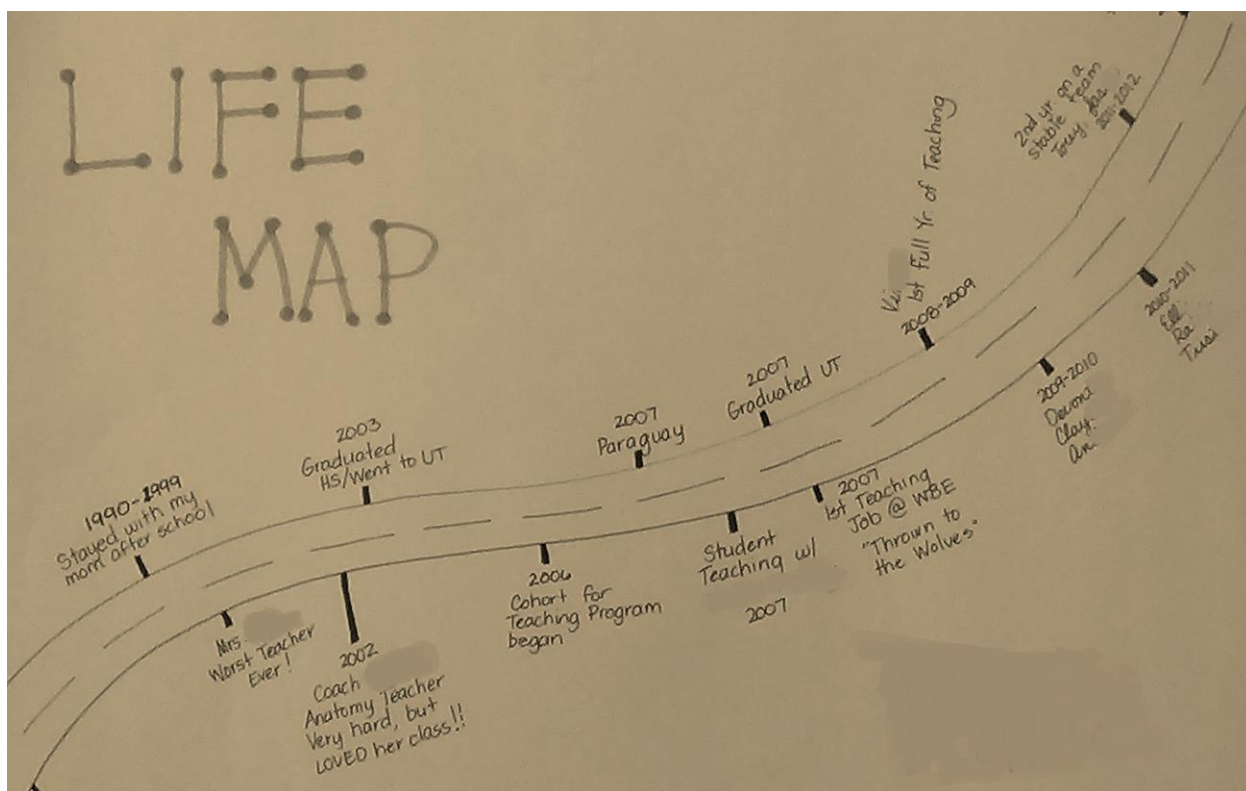 LIFE
MAP
1990-1999
Stayed with my
mom after school
Mrs.
Worst Teacher
Ever!
2003
Graduated
HS/Went to UT
2002
Coach
Anatomy Teacher
Very hard, but
LOVED her class!!
2006
Cohort for
Teaching Program
began
2007
Paraguay
Student
Teaching w/
2007
2007
Graduated UT
2007
1st Teaching
Job @ WBE
"Thrown to
the Wolves"
1st Full Yr. of Teaching
2008-2009
2009-2010
2010-2011
2nd yr on a
stable team
2011-2012